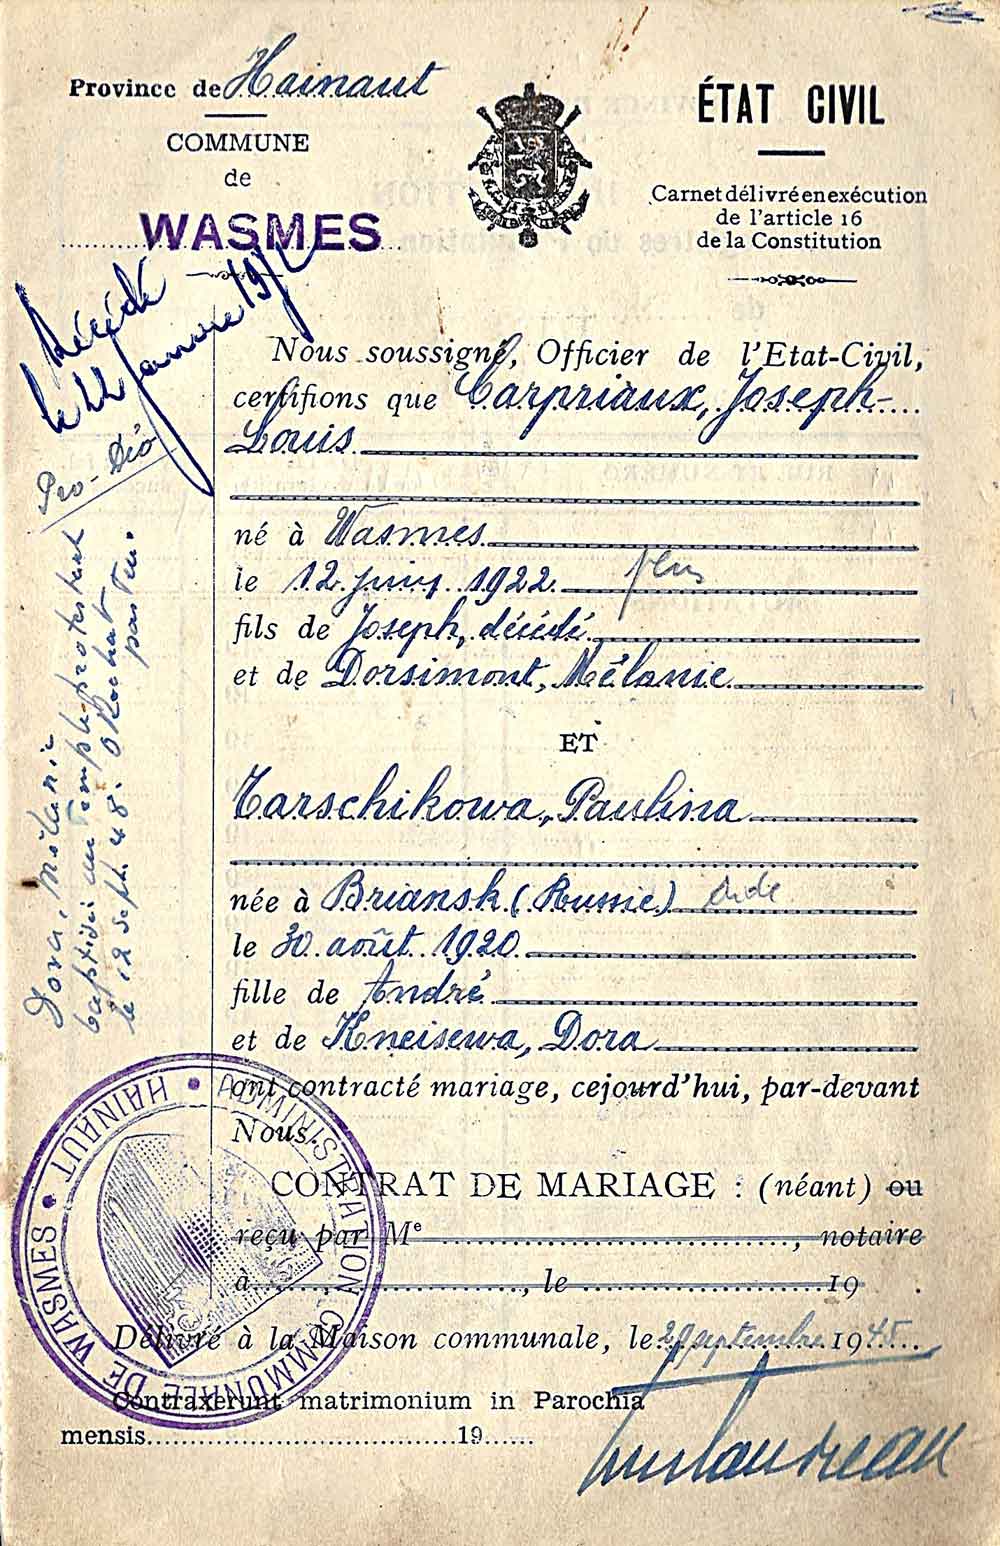 Province de Hainaut
COMMUNE
de
WASMES
ÉTAT CIVIL
Carnet délivré en exécution
de l'article 16
de la Constitution
Décédé
le 22 janvier 19
Pro-Déo
Nous soussigné, Officier de l'Etat-Civil,
certifions que Carpriaux, Joseph-
Louis
né à Wasmes
le 12 juin 1922
fils de Joseph, décédé
et de Dorsimont, Mélanie
ET
Tarschikowa, Paulina
née à Briansk (Russie)
le 30 août 1920
fille de André
et de Kneisewa, Dora
ont contracté mariage, cejourd'hui, par-devant
Nous.
CONTRAT DE MARIAGE : (néant) ou
reçu par Me , notaire
à , le 19 .
Délivré à la Maison communale, le 29 septembre 1945
Contraxerunt matrimonium in Parochia
mensis 19
Dora, Mélanie
baptisée au Temple protestant
le 12 sept. 48. O Rochat
pasteur
ADMINISTRATION COMMUNALE DE WASMES • HAINAUT •